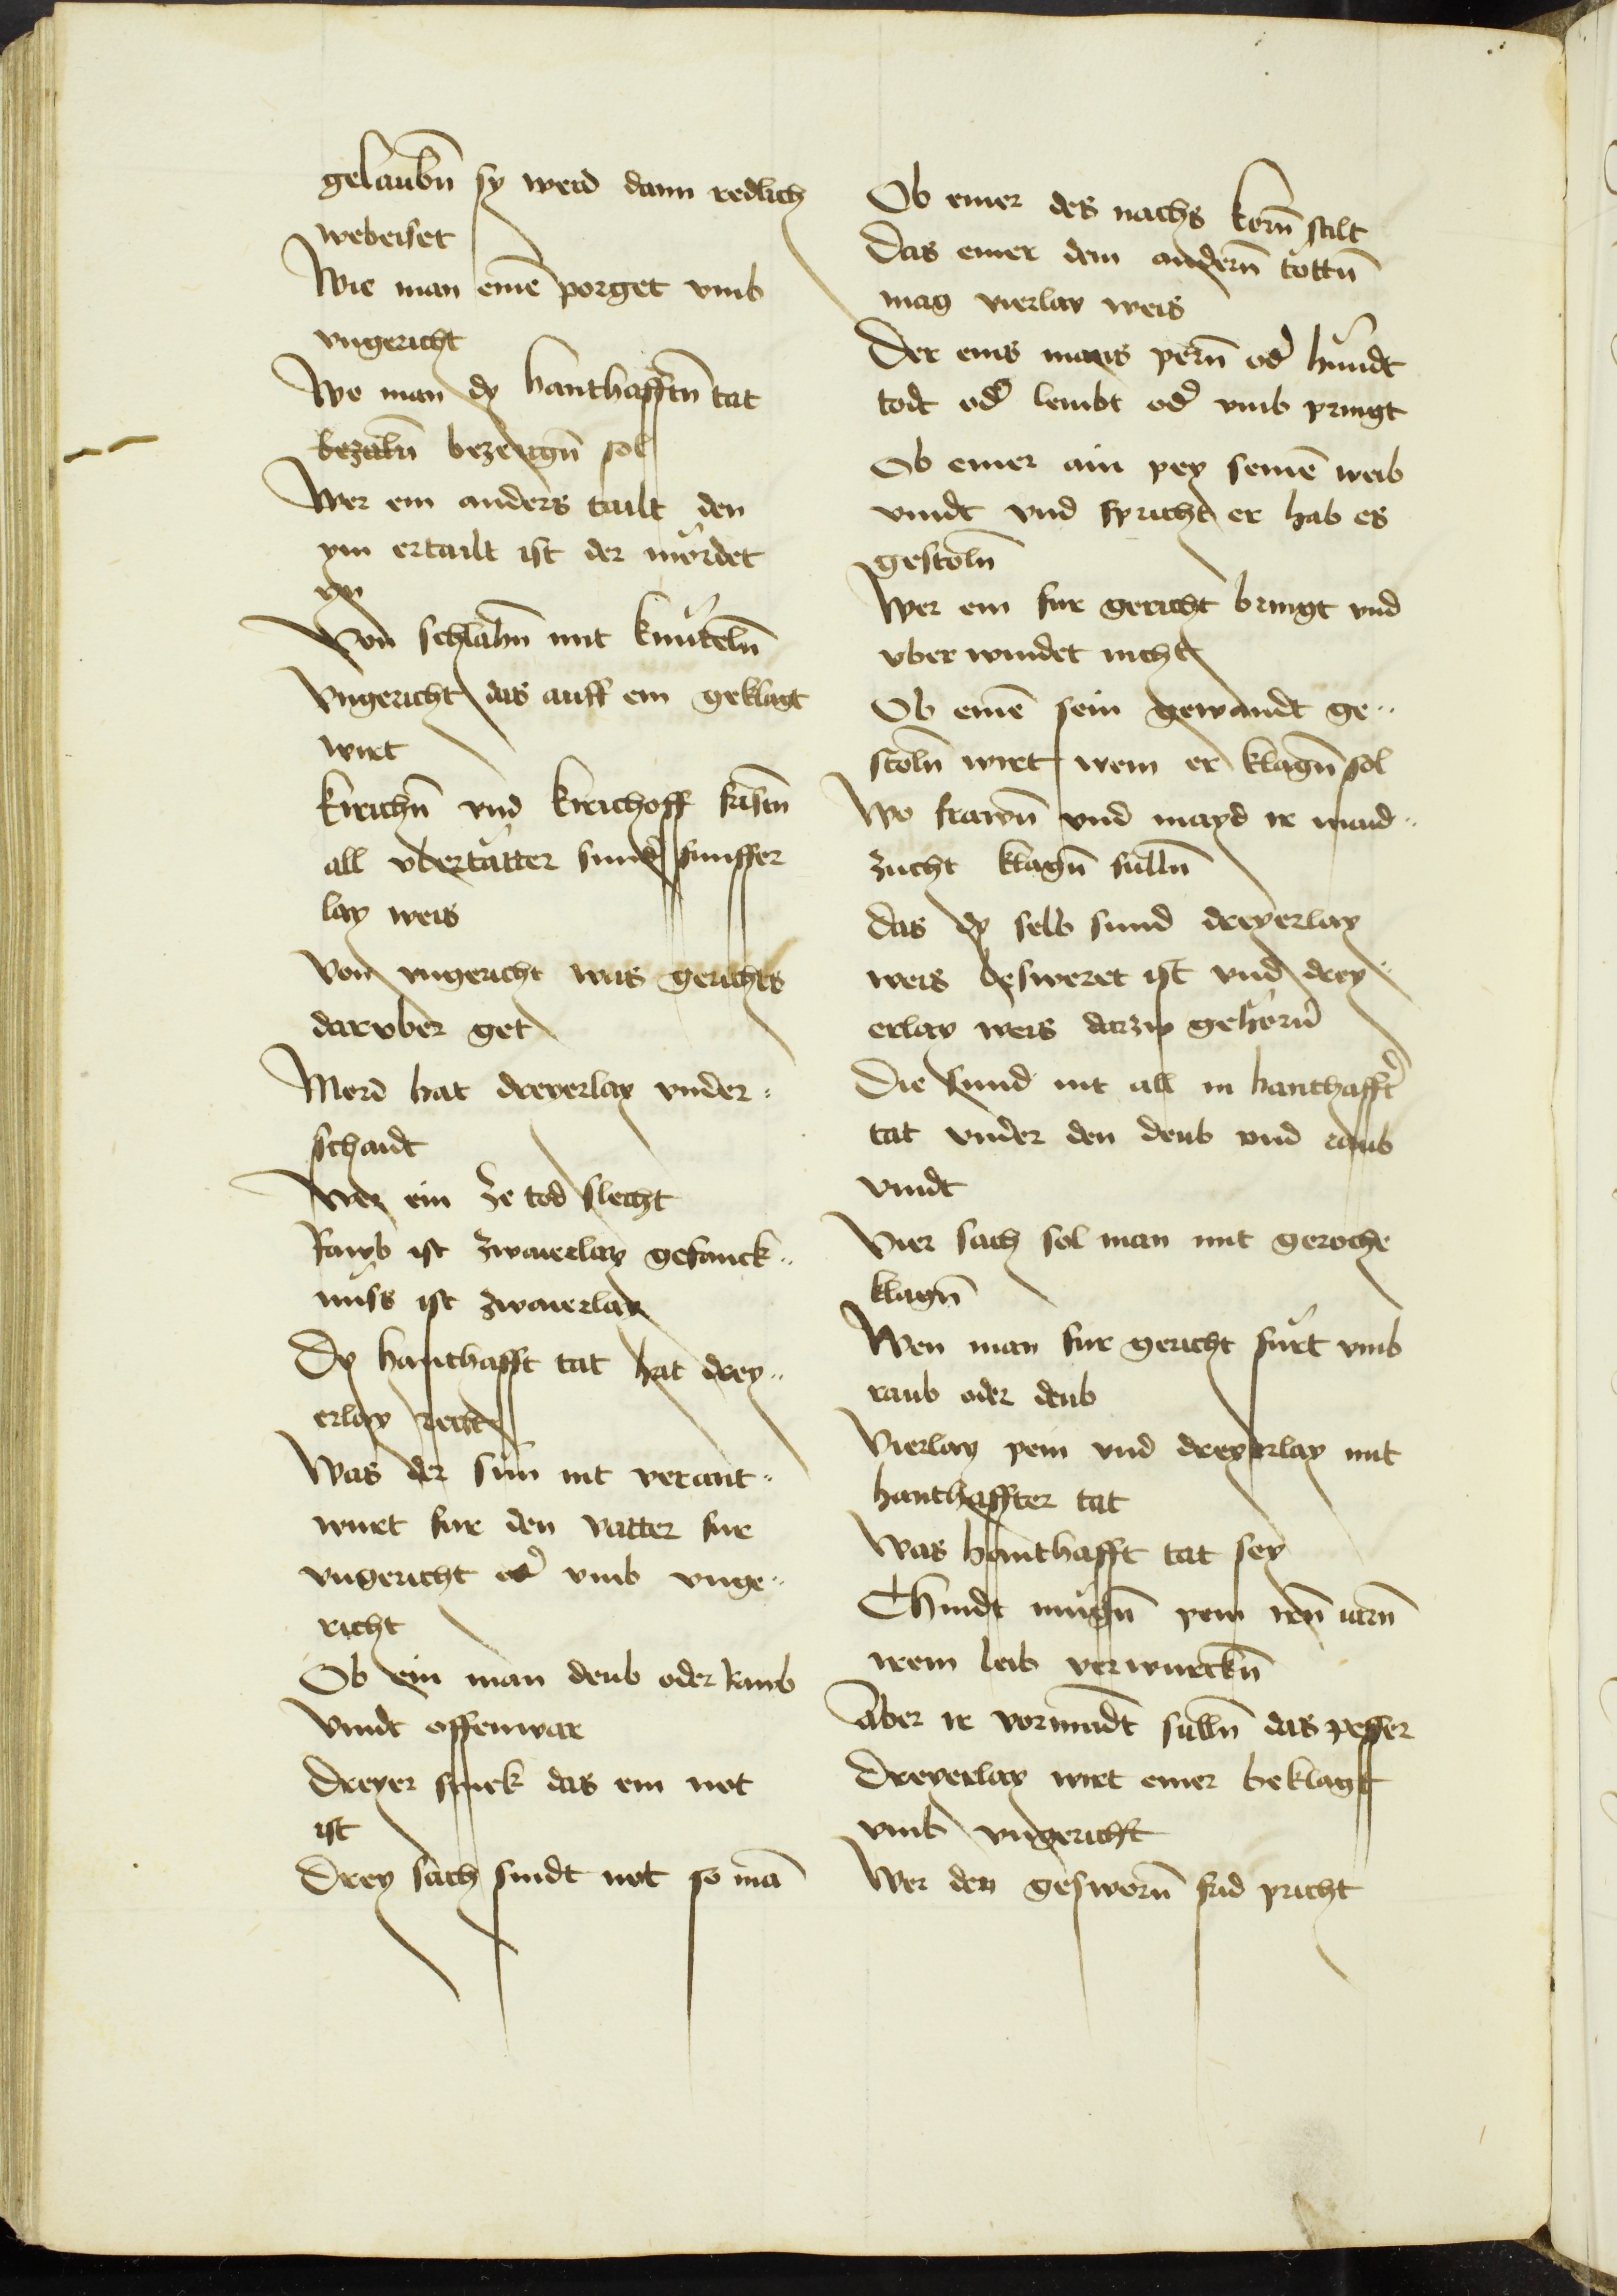 gelaubn̄ sy werd dann redlich
webeiset
Wie man einē porget vmb
vngericht
Wo man dy hanthafftn̄ tat
bezaln̄ bezeugn̄ sol
Wer ein anders tailt den
ym ertailt ist der mördet
yn
Von schlahn̄ mit knüteln̄
Vngericht das auff ein geklagt
wirt
kirichn̄ vnd kirichoff frisstn̄
all vbertätter sünd funffer
lay weis
Von vngericht was gerichts
darvber get
Mord hat dreyerlay vnder=
schaidt
Wer ein ze tod slecht
Rawb ist zwaierlay gefanck=
nüss ist zwaierlay
Dy hanthafft tat hat drey=
erlay recht
Was der sun nit verant=
wurt fur den vatter fur
vngericht od̄ vmb vnge=
richt
Ob ein man deub oder raub
vindt offenwar
Dreyer stuck das ein not
ist
Drey sach sindt not so mā
Ob einer des nachs korn̄ stilt
Das einer dem andern̄ töttn̄
mag vierlay weis
Der eins mans pern̄ od̄ hundt
todt od̄ lembt od̄ vmb pringt
Ob einer ain pey seinē weib
vindt vnd spricht er hab es
gestoln̄
Wer ein fur gericht bringt vnd
vber windet nicht
Ob einē sein gewandt ge=
stoln̄ wirt wem er klagn̄ sol
Wo frawn̄ vnd mayd ir maid=
zucht klagn̄ sulln̄
das dy selb sund dreyerlay
weis besweret ist vnd drey=
erlay weis darzw gehorn̄
Die sund nit all in hanthafft̄
tat vnder den deub vnd raub
vindt
Vier sach sol man mit geroche
klagn̄
Wen man fur gericht fürt vmb
raub oder deub
Vierlay pein vnd dreyerlay mit
hanthaffter tat
Was hanthafft tat sey
Chindt mügn̄ pein irn̄ iarn̄
irem leib verwurckn̄
Aber ir vormūdt sulln̄ das pesser
Dreyerlay wirt einer beklagt
vmb vngericht
Wer den gesworn̄ frid pricht